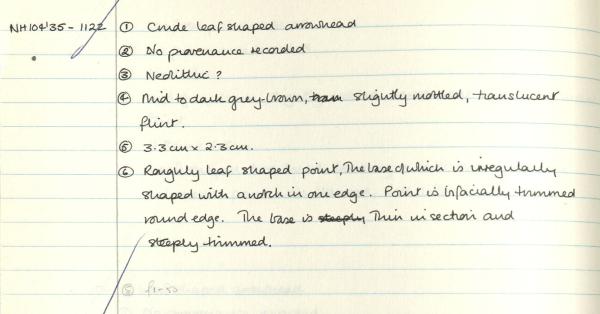 NH104'35-1122 ① Crude leaf shaped arrowhead
② No provenance recorded
③ Neolithic?
④ Mid to dark grey-brown, slightly mottled, translucent
flint.
⑤ 3.3cm x 2.3cm.
⑥ Roughly leaf shaped point, The base of which is irregularly
shaped with a notch in one edge. Point is bifacially trimmed
round edge. The base is steeply Thin in section and
steeply trimmed.